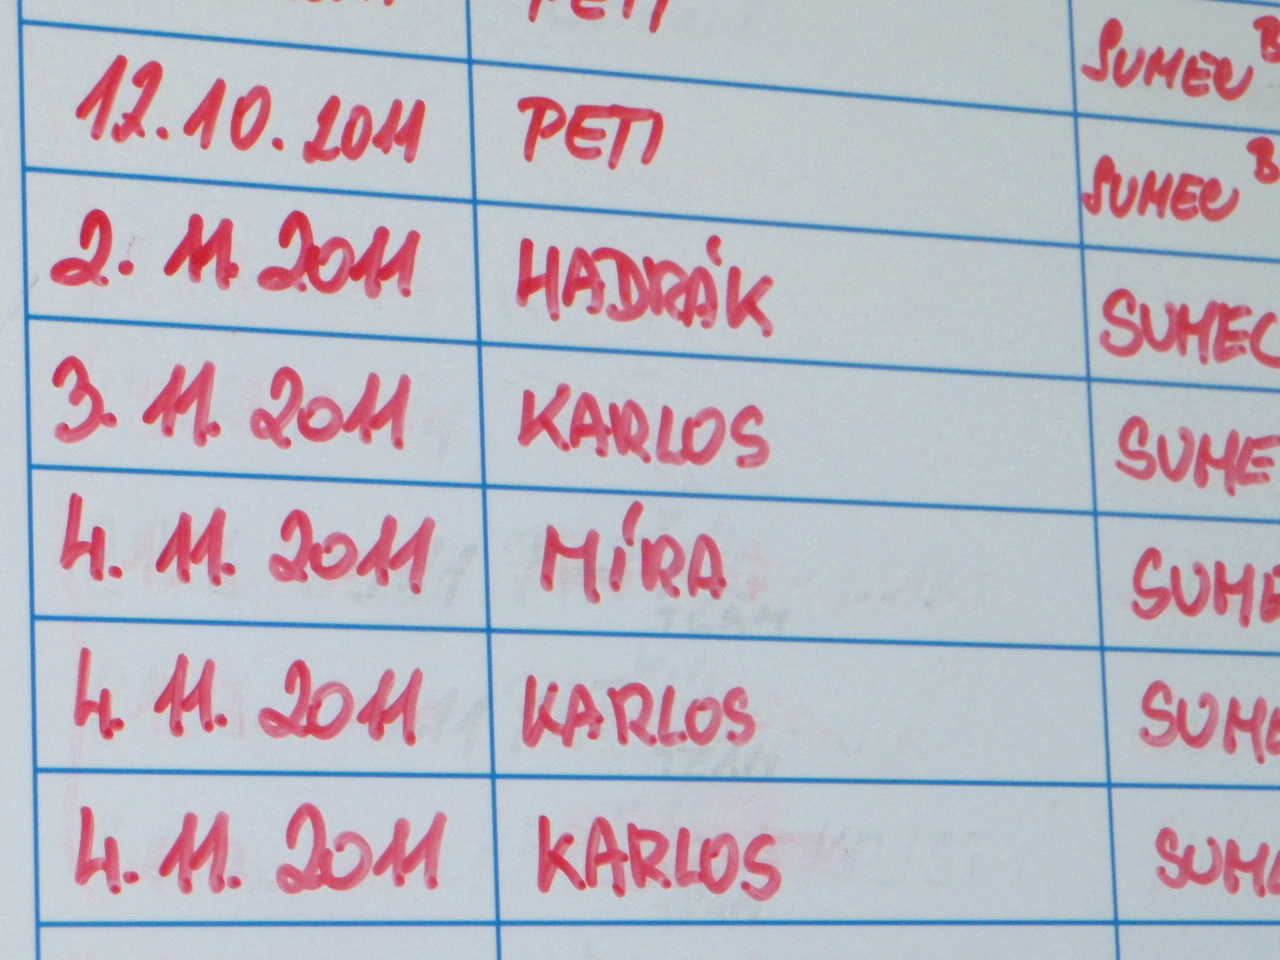 PETI SUMEC B
12.10.2011 PETI SUMEC B
2. 11. 2011 HADRÁK SUMEC
3. 11. 2011 KARLOS SUME
4. 11. 2011 MÍRA SUME
4. 11. 2011 KARLOS SUME
4. 11. 2011 KARLOS SUM